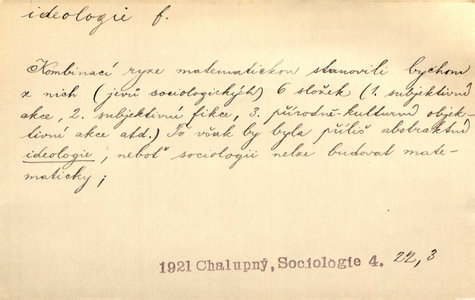 ideologie f.
Kombinací ryze matematickou stanovili bychom
z nich (jevů sociologických) 6 složek (1. subjektivní
akce, 2. subjektivní fikce, 3. přírodně-kulturní objek-
tivní akce atd.) To však by byla příliš abstraktní
ideologie, neboť sociologii nelze budovat mate-
maticky;
1921 Chalupný, Sociologie 4. 22,3